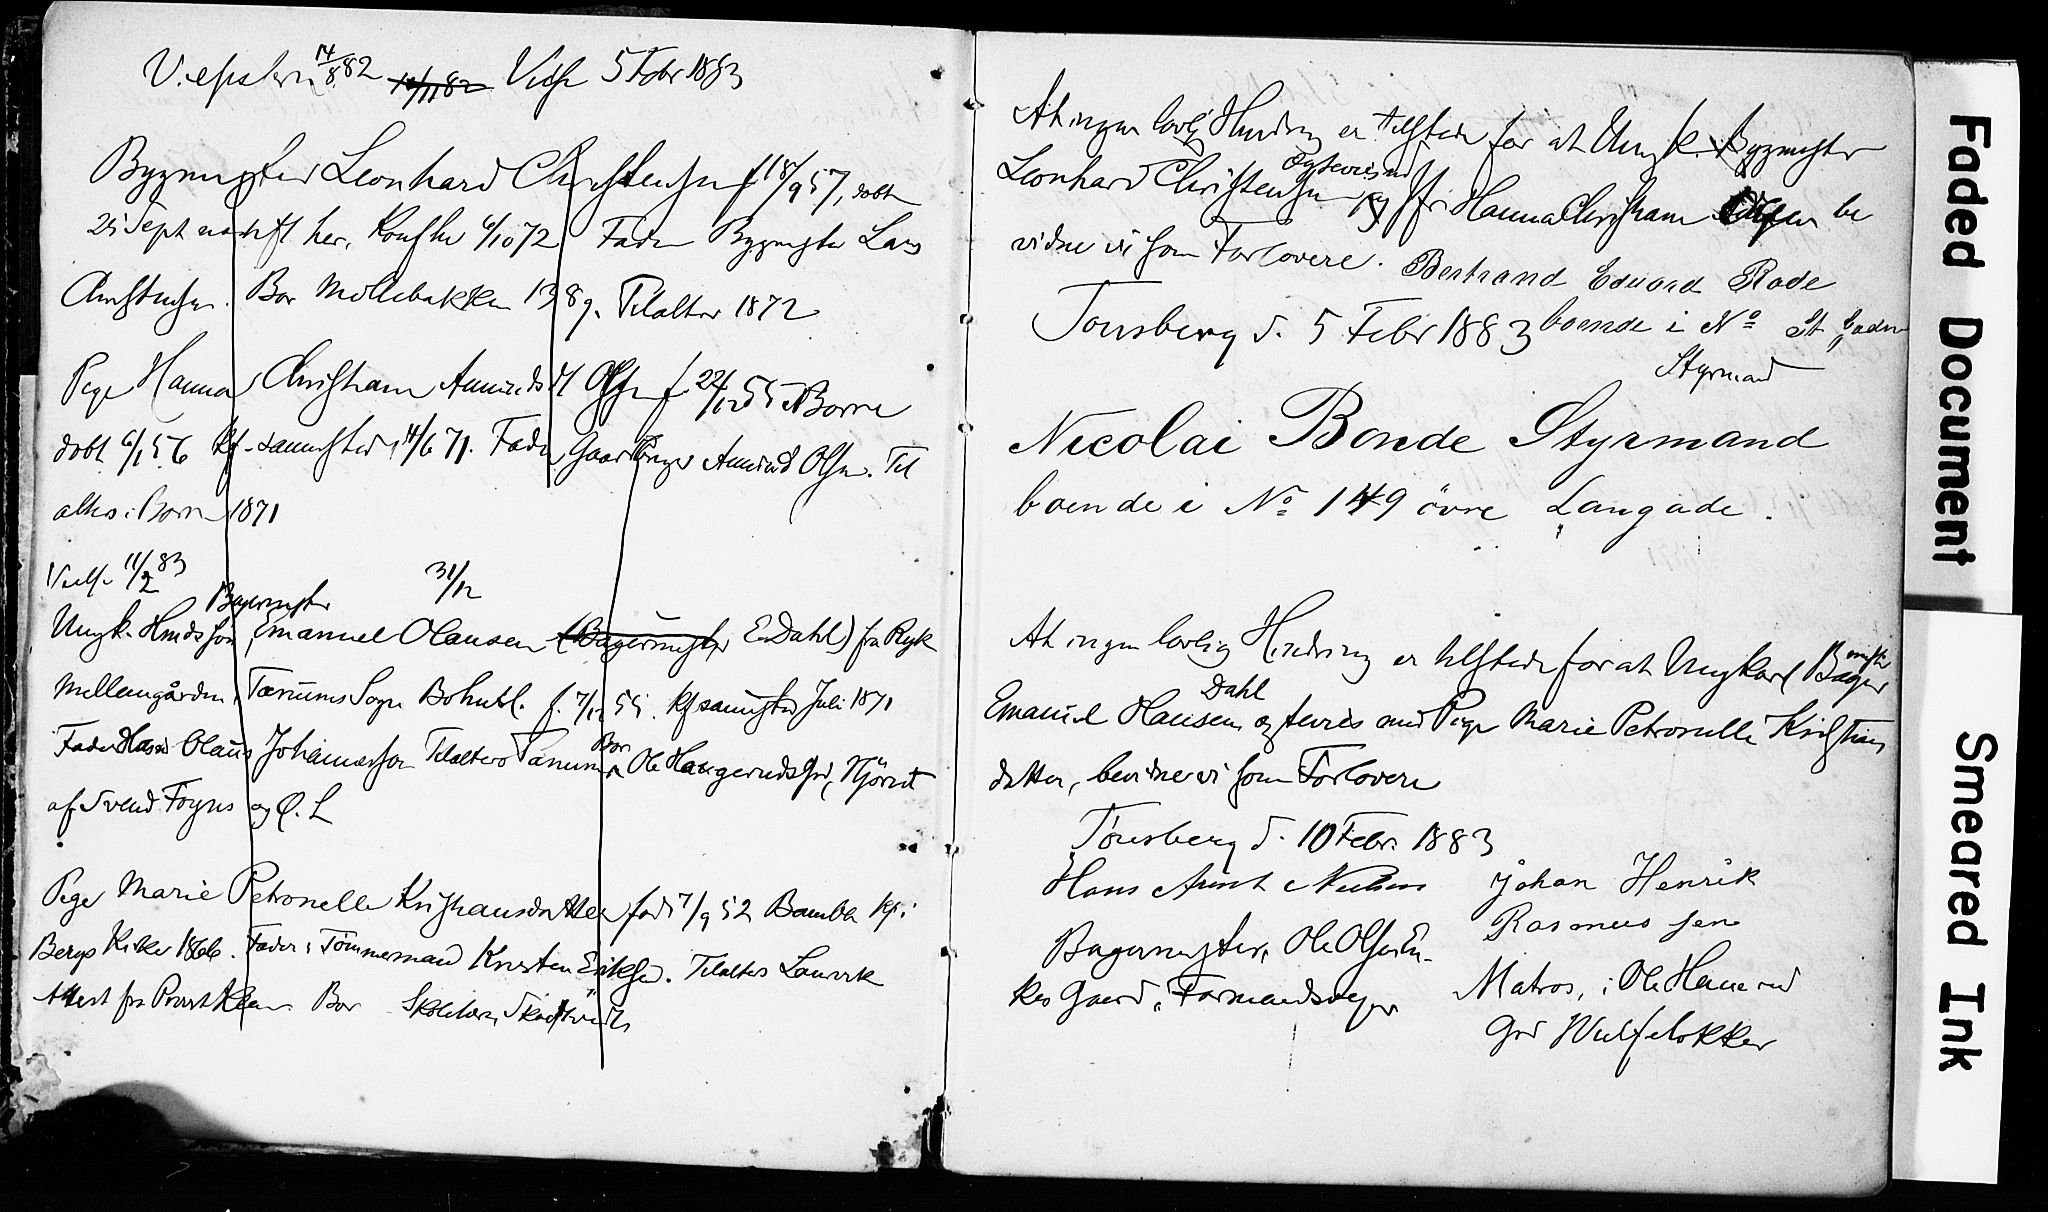 14/8 82 12/11 82 Vielse 5 Febr 1883
Bygmester Leonhard Christensen f 18/9 57, døbt
25 Sept her. Konfhr 6/10 72 Fader Bygmester Lars
Christensen. Bor Møllebakken 138 9. Tilalter 1872
Pige Hanna Christiane Amundsd Olsen f. 22/12 55 i Borre
døbt 6/1 56 Kf. sammesteds 14/6 71. Fader Gaardbruger Amund Olsen. Til
alters i Borre 1871
Viels. 11/2 83 31/12
Bagermester
Ungk. Emanuel Olausen (Bagermester E. Dahl) fra Ryk
Mellemgården, Tanums Sogn Bohusll. f. 7/12 55. Kf sammested Juli 1871
Fader Olaus Johannesson Tilalters Tanum Bor Ole Haugeruds Grd, Hjørnet
af Svend Foyns og Ø. L
Pige Marie Petronelle Kristiansdatter fød 7/9 52 Bamble Kf. i
Bergs Kirke 1866. Fader: Tømmermand Kristen Eriksen. Tilalters Laurvik
Attest fra Provst Bor
At ingen lovlig Hindring er tilstede for at Ungk. Bygmester
Leonhard Christensen og Hanna Christiane Olsen be
vidne vi som Forlovere. Bertrand Eduard Rode
Tønsberg d. 5 Febr 1883 boende i No St gaden
Styrmand
Nicolai Bonde Styrmand
boende i No 149 övre Langgade.
At ingen lovlig Hindring er tilstede for at Ungkarl Bager
mester
Emanuel Olausen Dahl og Pige Marie Petronelle Kristians
datter, bevidne vi som Forlovere
Tønsberg d. 10 Febr. 1883
Hans Arnt Nielsen Johan Henrik
Rasmussen
Bagermester, Ole Olsen
Gaard, Matros, i Ole Hauerud
Grd